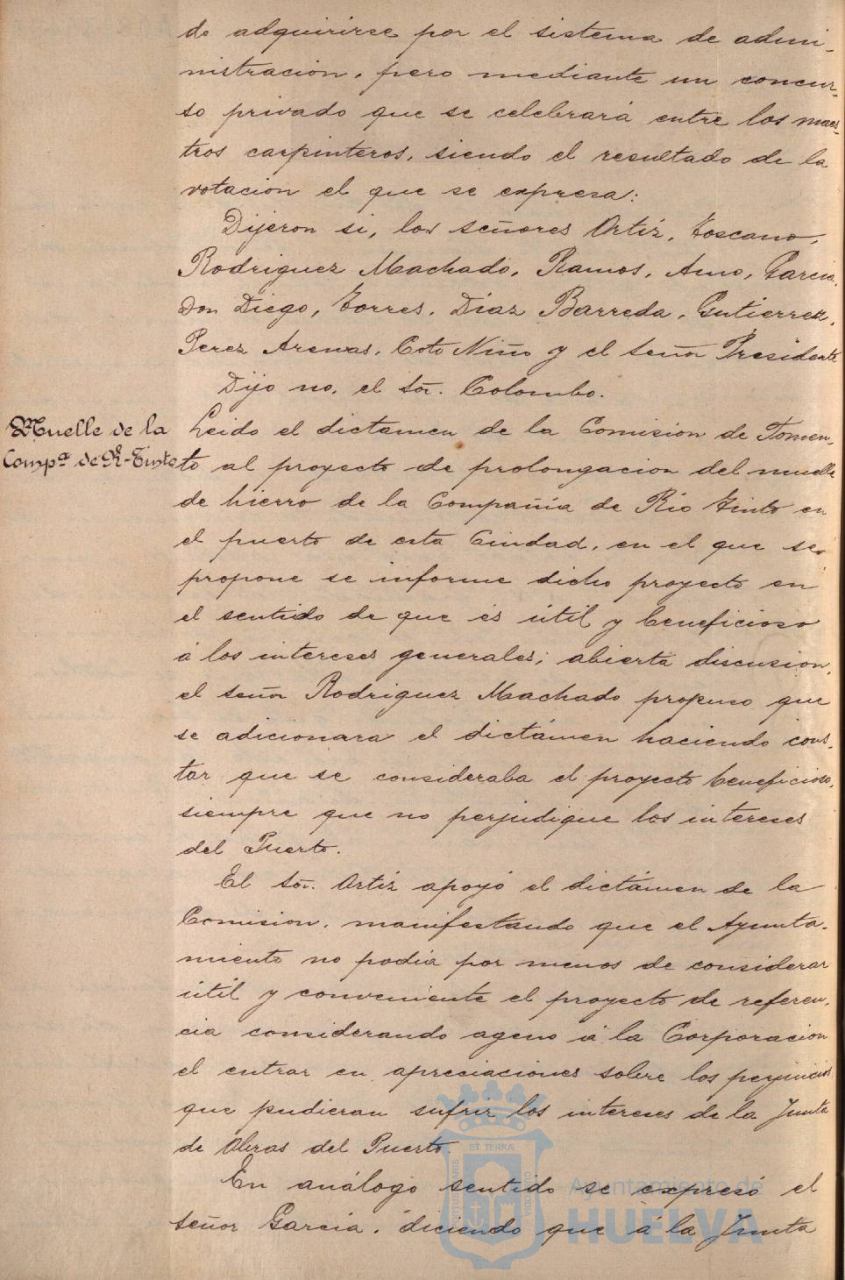 do adquirirse por el sistema de admi-
nistracion, pero mediante un concur-
so privado que se celebrará entre los maes-
tros carpinteros, siendo el resultado de la
votacion el que se expresa:
Dijeron si, los señores Ortiz, Toscano,
Rodriguez Machado, Ramos, Amo, Garcia,
Don Diego, Torres, Diaz Barreda, Gutierrez,
Perez Arenas, Coto Niño y el señor Presidente
Dijo no, el Sor. Colombo.
Muelle de la
Compª de R-Tinto
Leido el dictamen de la Comision de Fomen-
to al proyecto de prolongacion del muelle
de hierro de la Compañia de Rio Tinto en
el puerto de esta Ciudad, en el que se
propone se informe dicho proyecto en
el sentido de que és útil y beneficioso
á los intereses generales; abierta discusion,
el señor Rodriguez Machado propuso que
se adicionara el dictámen haciendo cons-
tar que se consideraba el proyecto beneficioso,
siempre que no perjudique los intereses
del Puerto.
El Sor. Ortiz apoyó el dictámen de la
Comision, manifestando que el Ayunta-
miento no podia por menos de considerar
útil y conveniente el proyecto de referen-
cia considerando ageno á la Corporacion
el entrar en apreciaciones sobre los perjuicios
que pudieran sufrir los intereses de la Junta
de Obras del Puerto.
En análogo sentido se expresó el
señor Garcia, diciendo que á la Junta
Ayuntamiento de
HUELVA